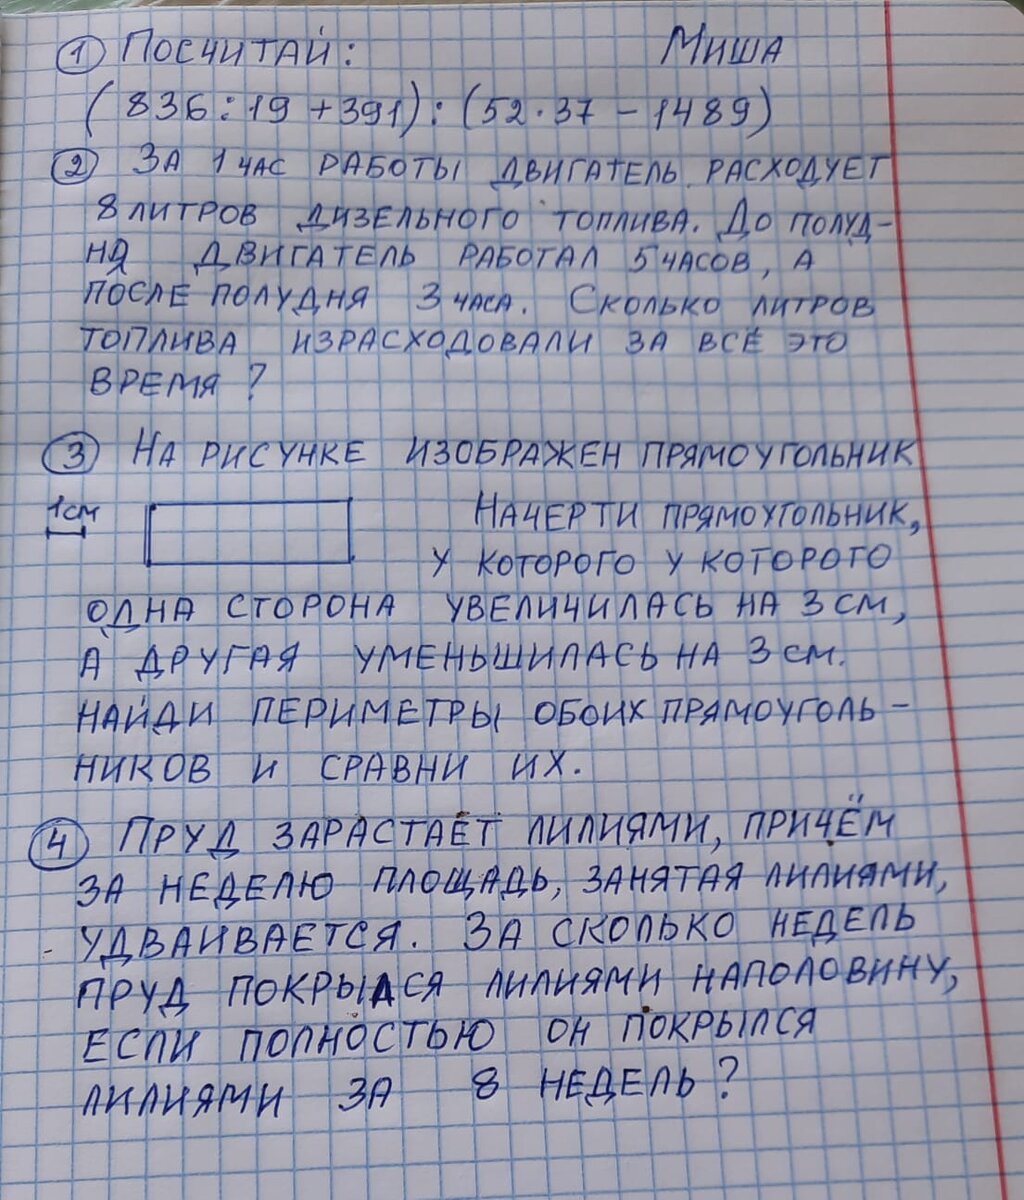 ① Посчитай: Миша
(836:19+391):(52·37-1489)
② За 1 час работы двигатель расходует
8 литров дизельного топлива. До полуд-
ня двигатель работал 5 часов, а
после полудня 3 часа. Сколько литров
топлива израсходовали за всё это
время?
③ На рисунке изображен прямоугольник
1см Начерти прямоугольник,
у которого у которого
одна сторона увеличилась на 3 см,
а другая уменьшилась на 3 см.
Найди периметры обоих прямоуголь-
ников и сравни их.
④ Пруд зарастает лилиями, причём
за неделю площадь, занятая лилиями,
удваивается. За сколько недель
пруд покрылся лилиями наполовину,
если полностью он покрылся
лилиями за 8 недель?